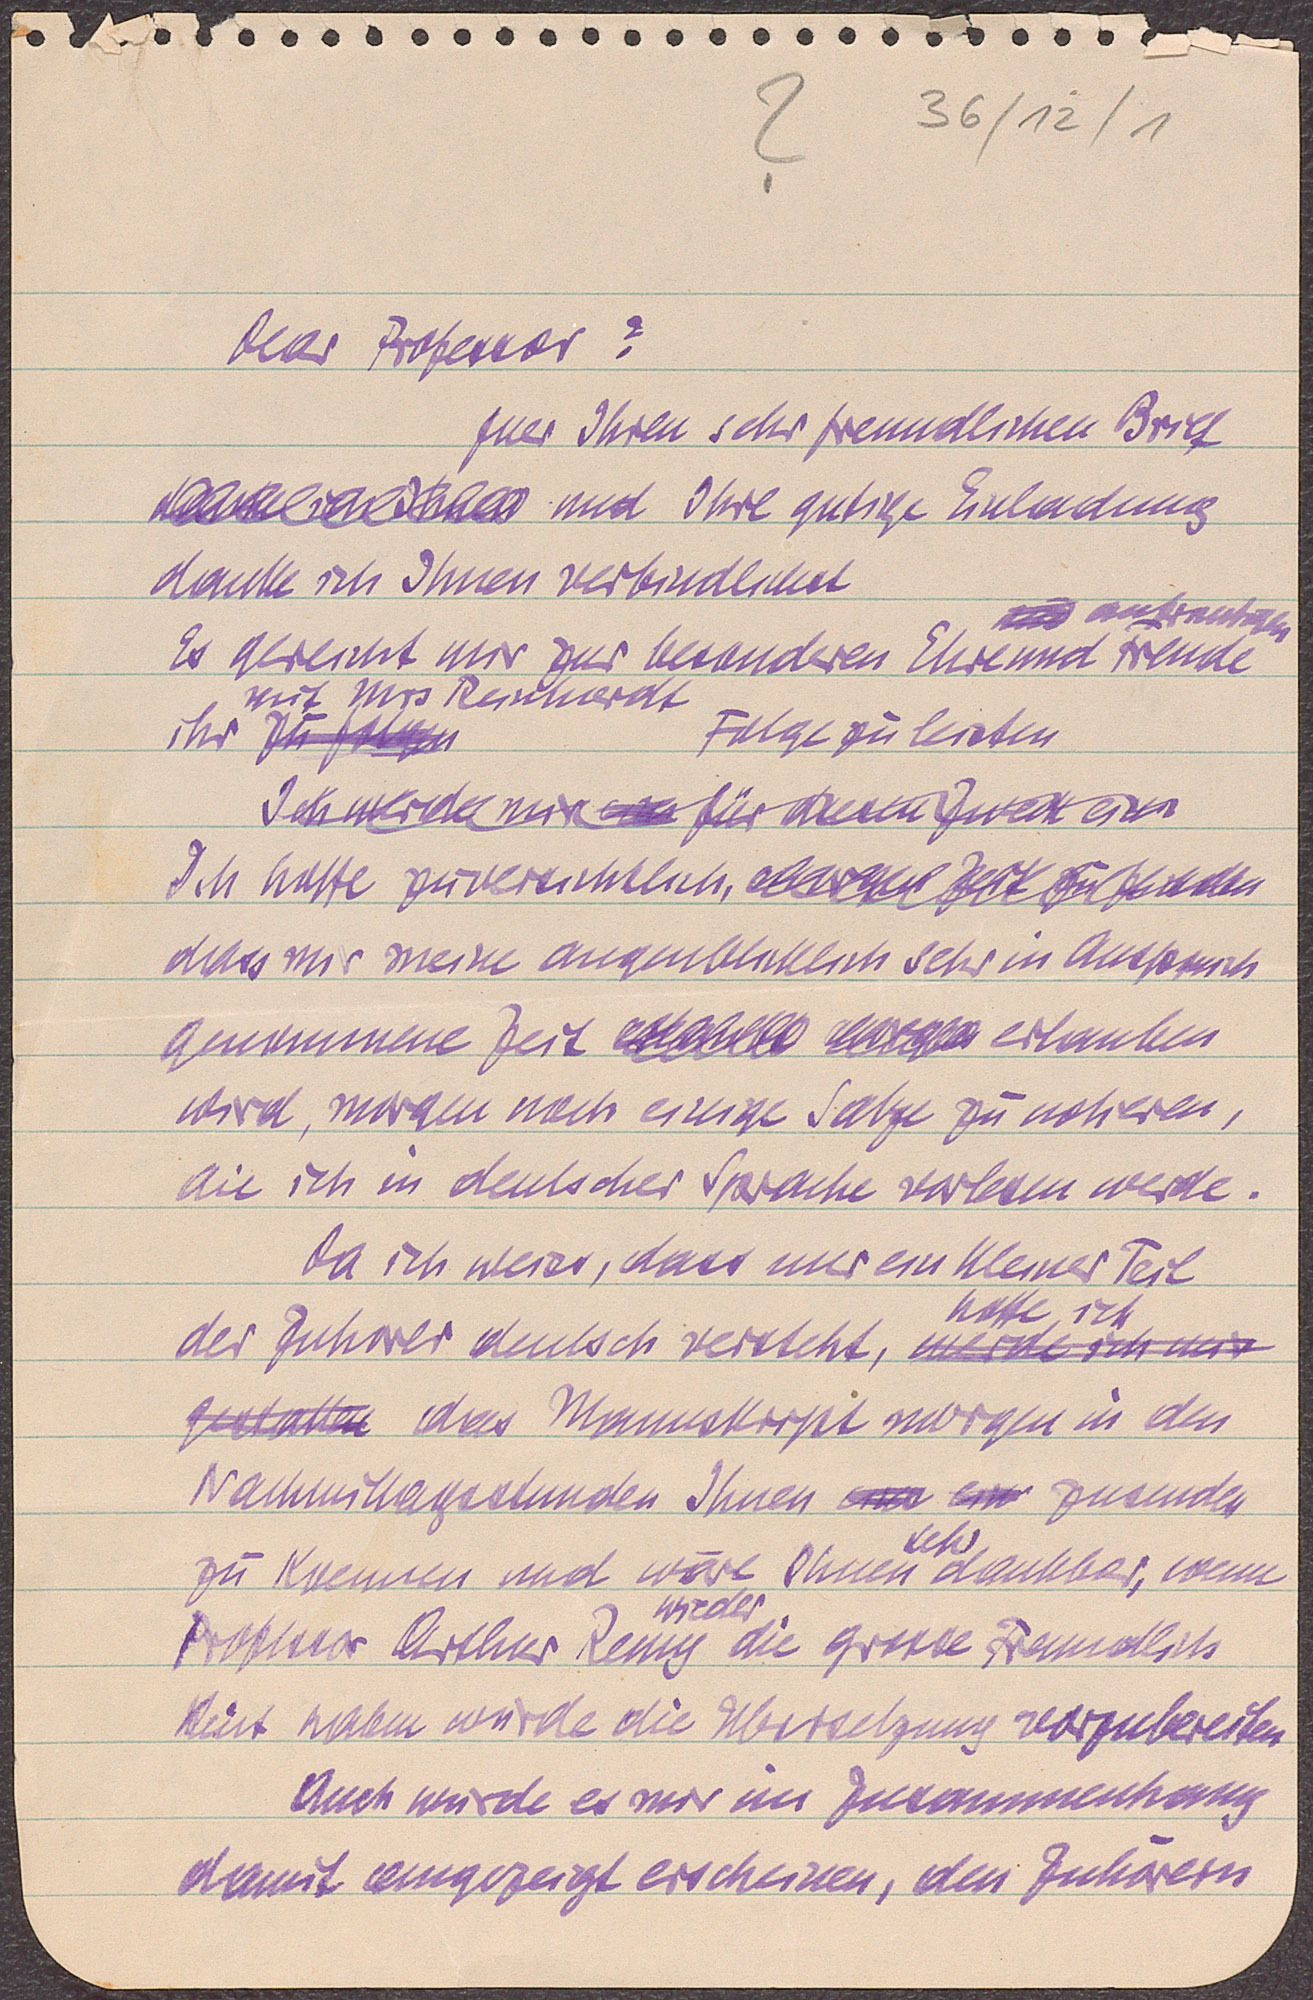 ? 36/12/1
Dear Professor ?
fuer Ihren sehr freundlichen Brief
und Ihre gutige Einladung
danke ich Ihnen verbindlichst
Es gereicht mir zur besonderen Ehre und Freude
mit Mrs Reinhardt
ihr zu folgen Folge zu leisten
Ich werde mir für diesen Zweck
Ich hoffe zuversichtlich,
dass mir meine augenblicklich sehr in Anspruch
genommene Zeit erlauben
wird, morgen noch einige Satze zu notieren,
die ich in deutscher Sprache vorlesen werde.
Da ich weiss, dass nur ein kleiner Teil
hoffe ich
der Zuhorer deutsch versteht, werde ich mir
gestatten das Manuskript morgen in den
Nachmittagsstunden Ihnen zusenden
sehr
zu koennen und wäre Ihnen dankbar, wenn
wieder
Professor Arthur Remy die grosse Freundlich
keit haben wurde die Ubersetzung vorzubereiten
Auch wurde es mir im Zusammenhang
damit angezeigt erscheinen, den Zuhörern